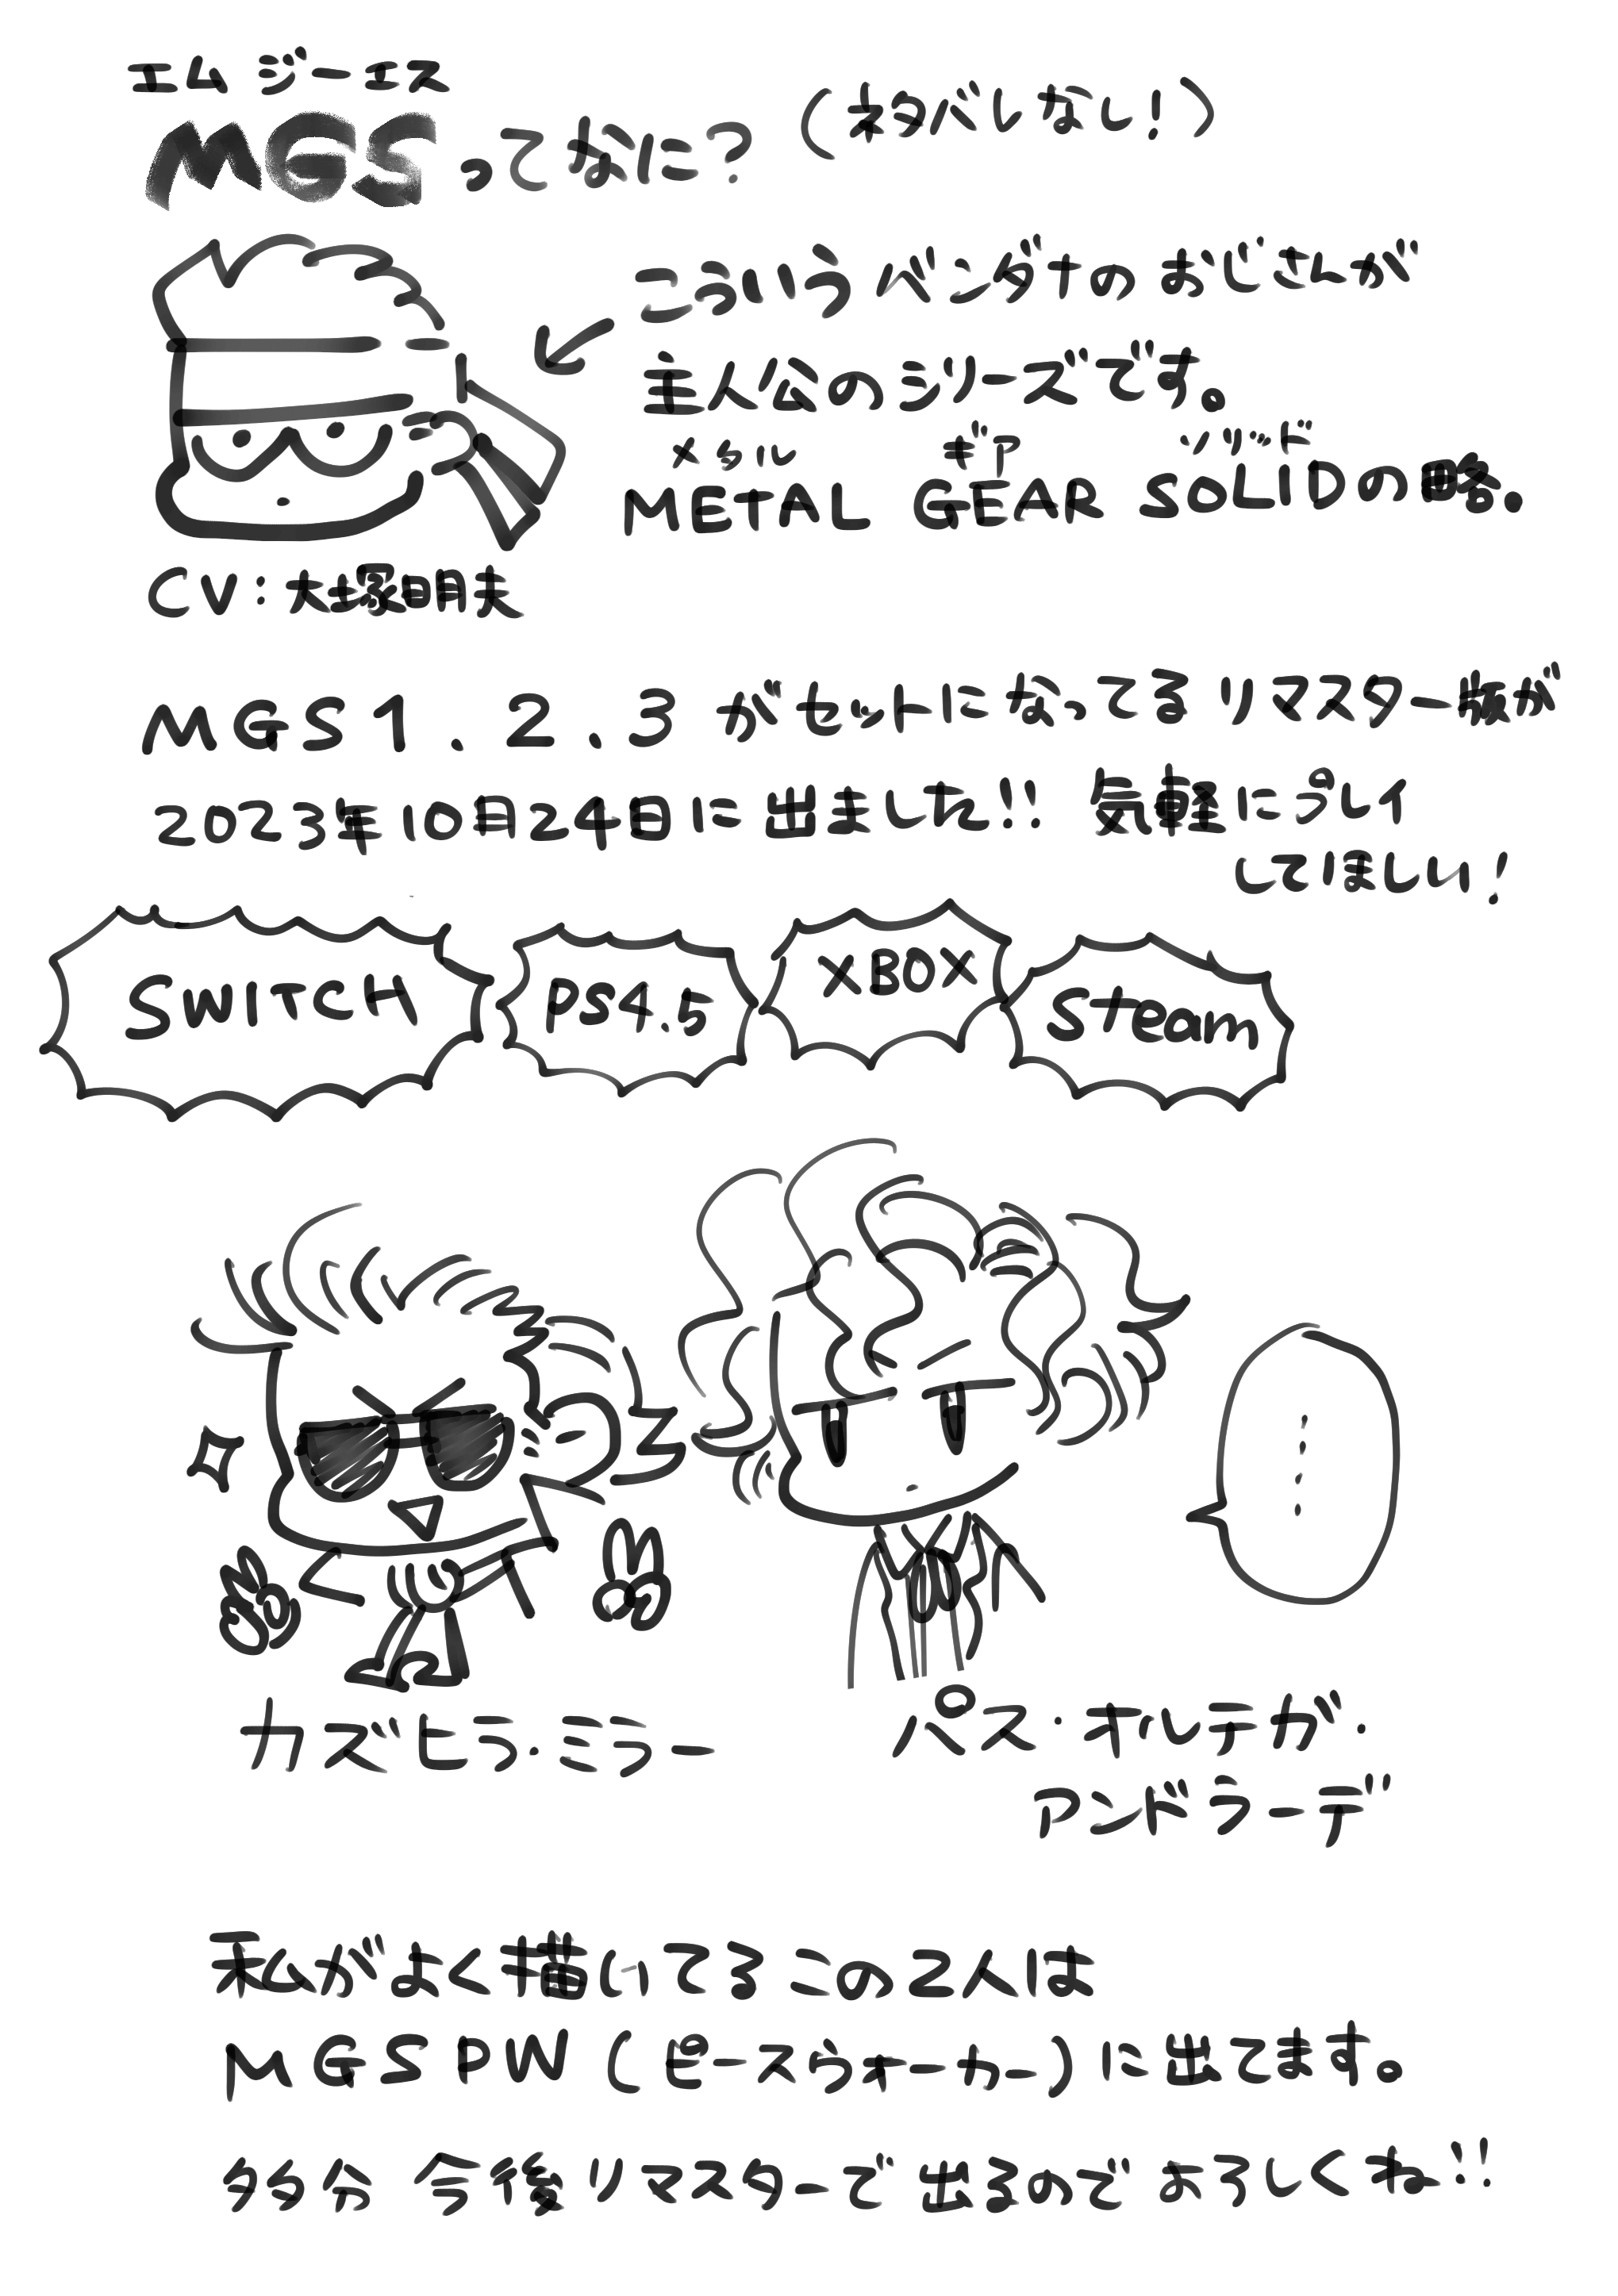 エムジーエス
MGSってなに?(ネタバレなし!)
こういうバンダナのおじさんが
主人公のシリーズです。
メタル ギア ソリッド
METAL GEAR SOLIDの略。
CV:大塚明夫
MGS1.2.3がセットになってるリマスター版が
2023年10月24日に出ました!! 気軽にプレイ
してほしい!
SWITCH
PS4.5
XBOX
Steam
‥‥
カズヒラ・ミラー
パス・オルテガ・
アンドラーデ
私がよく描いてるこの2人は
MGSPW(ピースウォーカー)に出てます。
多分 今後リマスターで出るのでよろしくね!!